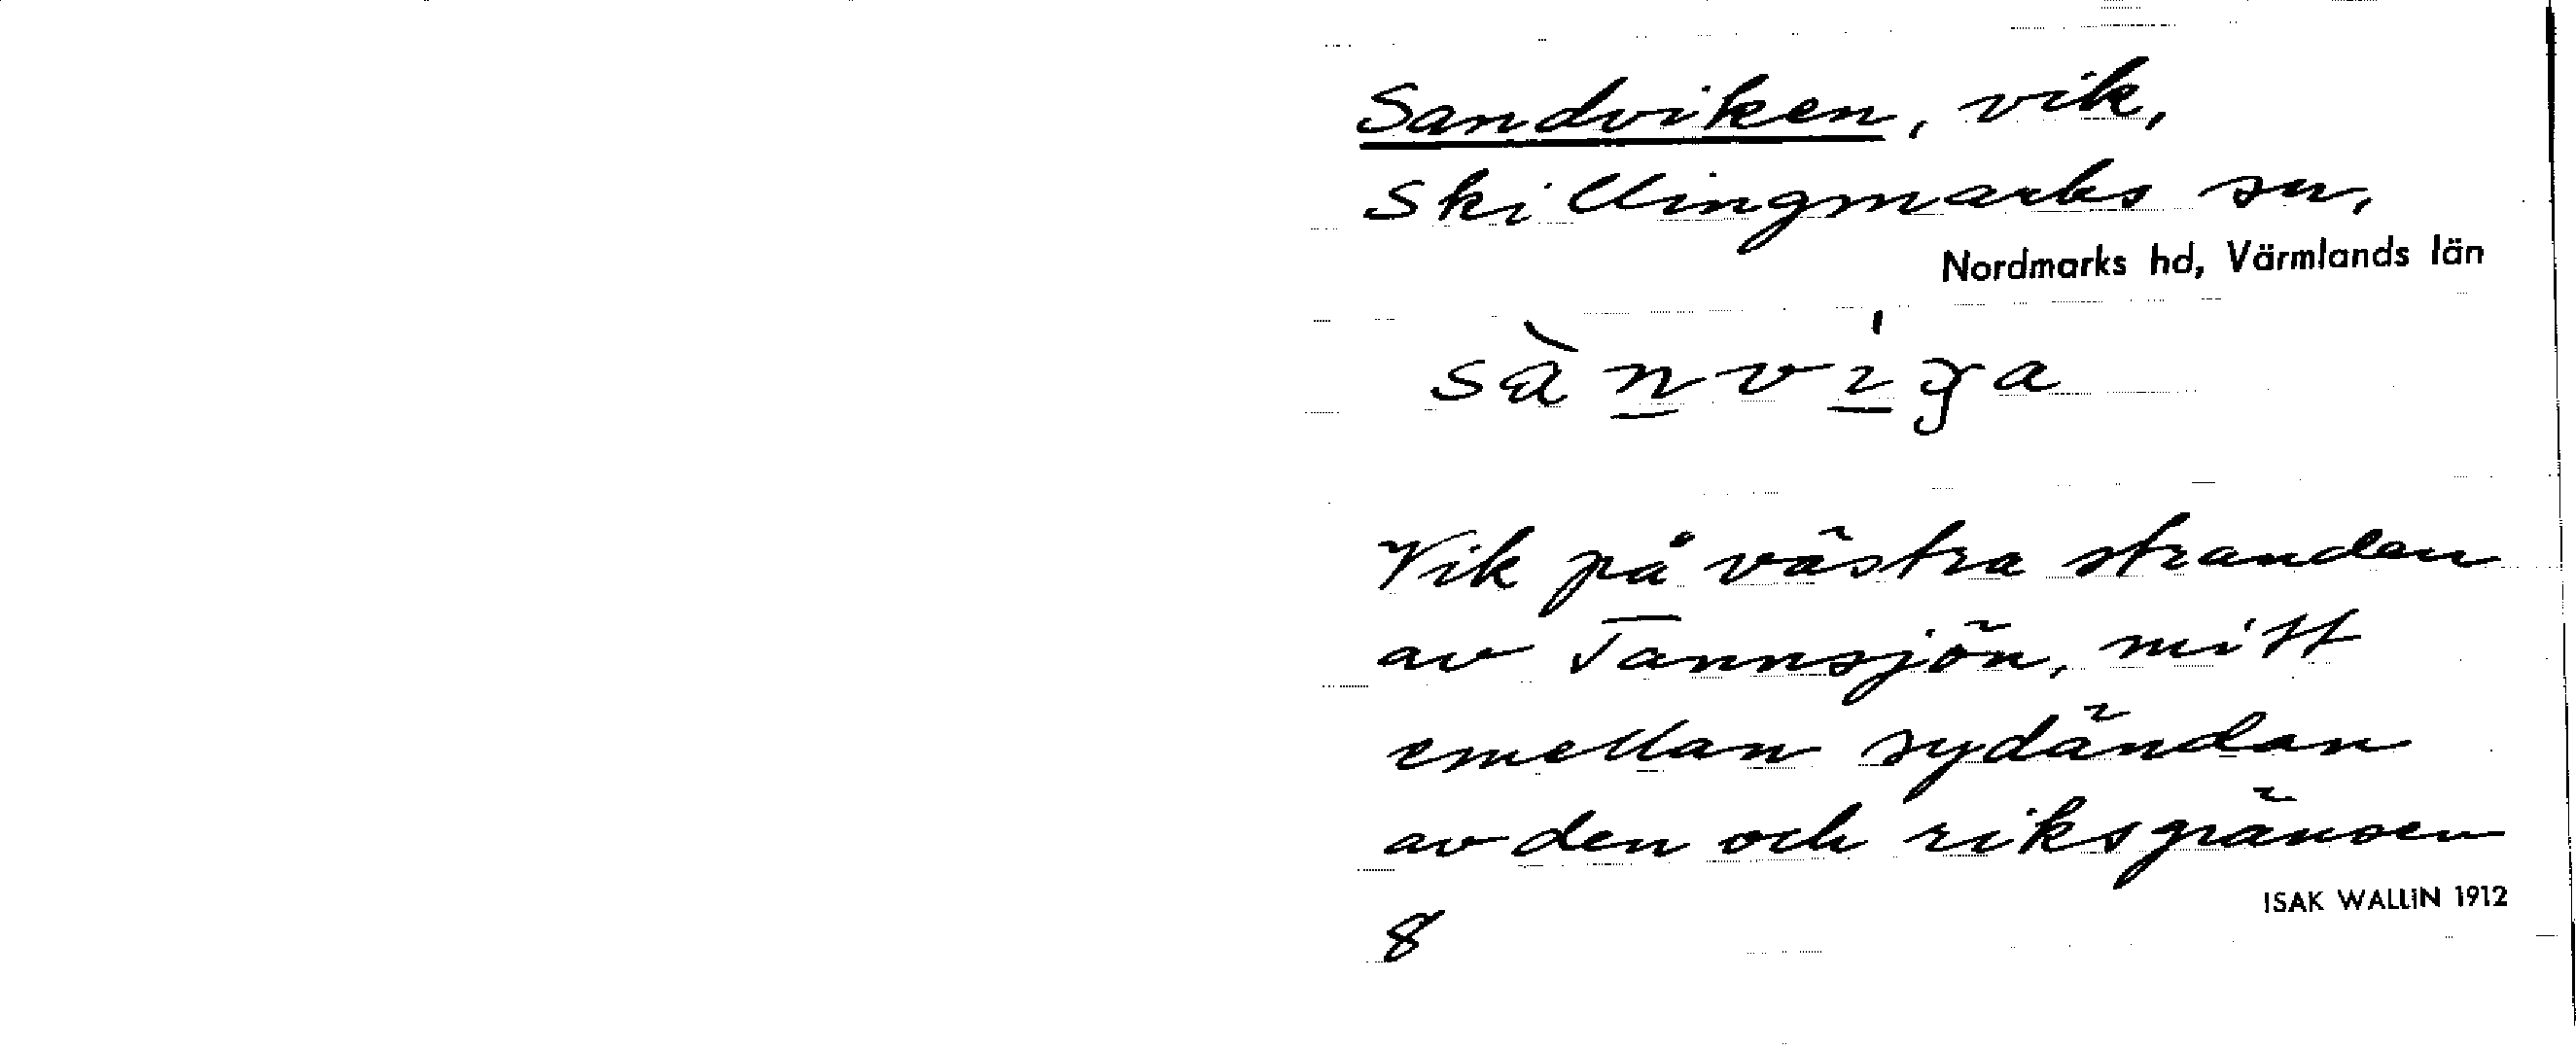 Sandviken, vik,
Skillingmarks sn,
Nordmarks hd, Värmlands län
Vik på västra stranden
av Tannsjön, mitt
emellan sydändan
av den och riksgränsen
ISAK WALLIN 1912
8